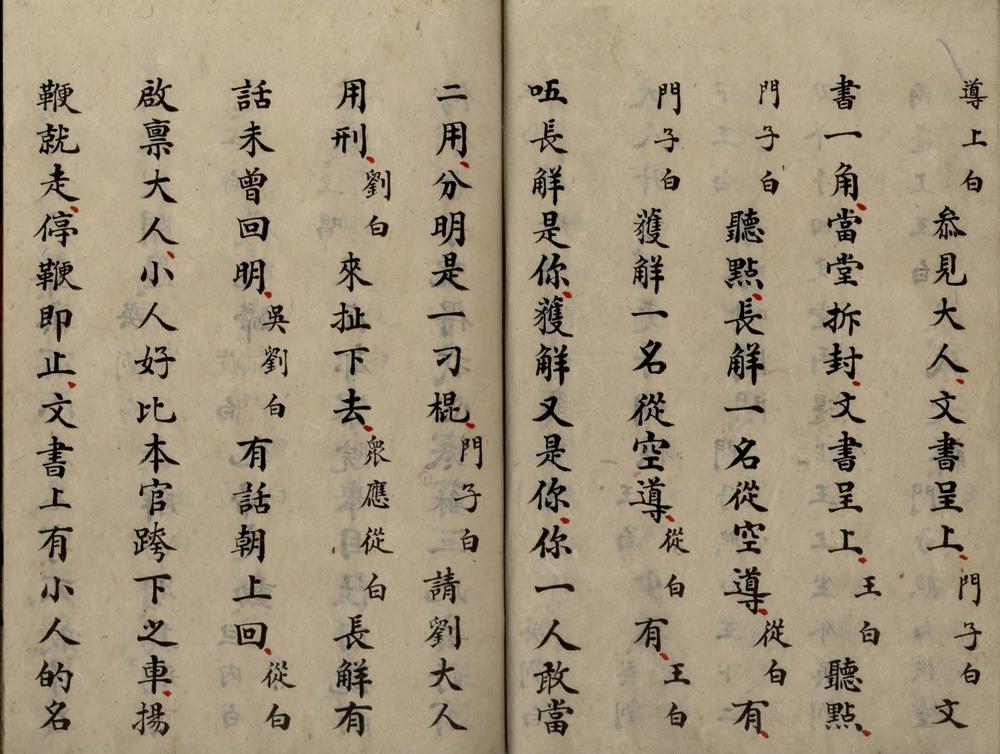 導上白叅見大人文書呈上門子白文
書一角當堂拆封文書呈上王白聽點
門子白聽點長解一名從空導從白有
門子白獲解一名從空導從白有王白
呸長解是你獲解又是你你一人敢當
二用分明是一刁棍門子白請劉大人
用刑劉白來扯下去衆應從白長解有
話未曾回明吳劉白有話朝上回從白
啟禀大人小人好比本官跨下之車揚
鞭就走停鞭即止文書上有小人的名